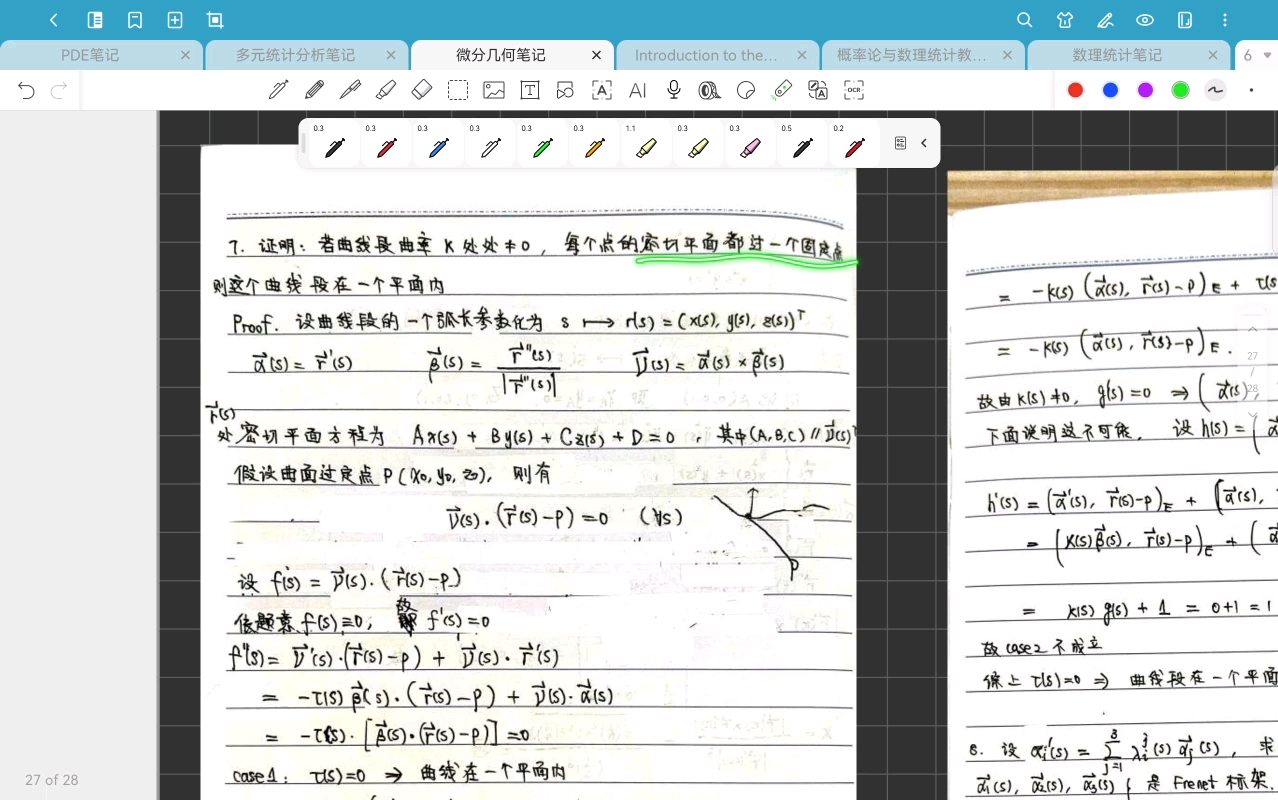 PDE笔记
多元统计分析笔记
微分几何笔记
Introduction to the...
概率论与数理统计教...
数理统计笔记
6
0.3 0.3 0.3 0.3 0.3 0.3 1.1 0.3 0.3 0.5 0.2
7. 证明: 若曲线段曲率 K 处处≠0, 每个点的密切平面都过一个固定点
则这个曲线段在一个平面内
Proof. 设曲线段的一个弧长参数化为 s ⟼ r(s) = (x(s), y(s), z(s))ᵀ
α⃗(s) = r⃗'(s) β⃗(s) = r⃗''(s) / |r⃗''(s)| ν⃗(s) = α⃗(s) × β⃗(s)
r⃗(s)
处密切平面方程为 Ax(s) + By(s) + Cz(s) + D = 0, 其中(A,B,C) // ν⃗(s)ᵀ
假设曲面过定点 P(x₀, y₀, z₀), 则有
ν⃗(s)·(r⃗(s)-p) = 0 (∀s)
P
设 f(s) = ν⃗(s)·(r⃗(s)-p)
依题意 f(s)≡0; 故 f'(s)=0
f'(s) = ν⃗'(s)·(r⃗(s)-p) + ν⃗(s)·r⃗'(s)
= -τ(s) β⃗(s)·(r⃗(s)-p) + ν⃗(s)·α⃗(s)
= -τ(s)·[β⃗(s)·(r⃗(s)-p)] = 0
case1: τ(s)=0 ⇒ 曲线在一个平面内
27 of 28
= -K(s) (α⃗(s), r⃗(s)-p)_E + τ(s
= -K(s) (α⃗(s), r⃗(s)-p)_E.
故由 K(s)≠0, g'(s)=0 ⇒ (α⃗(s),
下面说明这不可能, 设 h(s) = (α⃗
h'(s) = (α⃗'(s), r⃗(s)-p)_E + (α⃗(s),
= (K(s)β⃗(s), r⃗(s)-p)_E + (α⃗
= K(s) g(s) + 1 = 0+1 = 1
故 case2 不成立
综上 τ(s)=0 ⇒ 曲线段在一个平面
8. 设 α⃗ᵢ'(s) = Σ_{j=1}^{3} λᵢʲ(s) α⃗ⱼ(s), 求
α⃗₁(s), α⃗₂(s), α⃗₃(s) } 是 Frenet 标架.
27
/
28